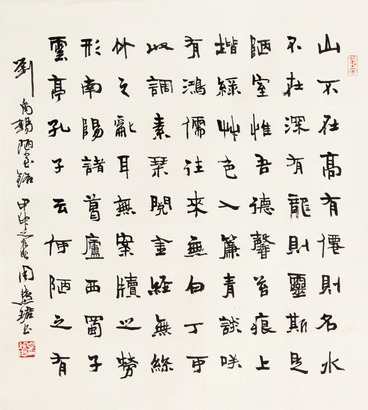 山不在高有僊則名水
不在深有龍則靈斯是
陋室惟吾德馨苔痕上
堦綠艸色入簾青談咲
有鴻儒往來無白丁可
以調素琴閱金經無絲
竹之亂耳無案牘之勞
形南陽諸葛廬西蜀子
雲亭孔子云何陋之有
劉禹錫陋室銘甲申之夏周